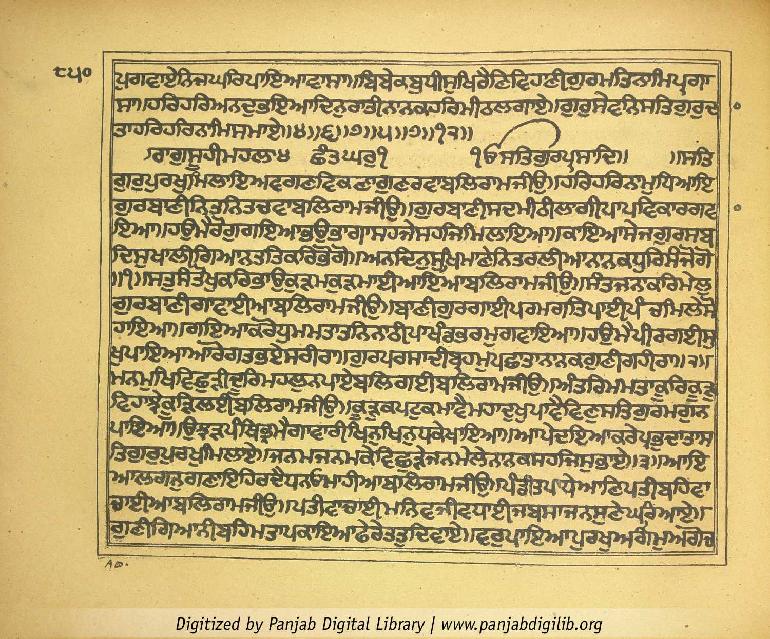 ੮੫੦
ਪ੍ਰਗਟਾਏਨਿਜਘਰਿਪਾਇਆਵਾਸਾ॥ਬਿਬੇਕਬੁਧੀਸੁਖਿਰੈਣਿਵਿਹਾਣੀਗੁਰਮਤਿਨਾਮਿਪ੍ਰਗਾ
ਸਾ॥ਹਰਿਹਰਿਅਨਦੁਭਇਆਦਿਨੁਰਾਤੀਨਾਨਕਹਰਿਮੀਠਲਗਾਏ॥ਗੁਰੁਸੇਵਨਿਸਤਿਗੁਰੁਦ
ਤਾਹਰਿਹਰਿਨਾਮਿਸਮਾਏ॥੪॥੬॥੭॥੫॥੭॥੧੨॥
ਰਾਗੁਸੂਹੀਮਹਲਾ੪ ਛੰਤਘਰੁ੧ ੴਸਤਿਗੁਰਪ੍ਰਸਾਦਿ॥ ॥ਸਤਿ
ਗੁਰੁਪੁਰਖੁਮਿਲਾਇਅਵਗਣਵਿਕਣਾਗੁਣਰਵਾਬਲਿਰਾਮਜੀਉ॥ਹਰਿਹਰਿਨਾਮੁਧਿਆਇ
ਗੁਰਬਾਣੀਨਿਤਨਿਤਚਵਾਬਲਿਰਾਮਜੀਉ॥ਗੁਰਬਾਣੀਸਦਮੀਠੀਲਾਗੀਪਾਪਵਿਕਾਰਗਵ
ਇਆ॥ਹਉਮੈਰੋਗੁਗਇਆਭਉਭਾਗਾਸਹਜੇਸਹਜਿਮਿਲਾਇਆ॥ਕਾਇਆਸੇਜਗੁਰਸਬ
ਦਿਸੁਖਾਲੀਗਿਆਨਤਤਿਕਰਿਭੋਗੋ॥ਅਨਦਿਨੁਸੁਖਿਮਾਣੇਨਿਤਰਲੀਆਨਾਨਕਧੁਰਿਸੰਜੋਗੋ
॥੧॥ਸਤੁਸੰਤੋਖੁਕਰਿਭਾਉਕੁੜਮੁਕੁੜਮਾਈਆਇਆਬਲਿਰਾਮਜੀਉ॥ਸੰਤਜਨਾਕਰਿਮੇਲੁ
ਗੁਰਬਾਣੀਗਾਵਾਈਆਬਲਿਰਾਮਜੀਉ॥ਬਾਣੀਗੁਰਗਾਈਪਰਮਗਤਿਪਾਈਪੰਚਮਿਲੇਸੋ
ਹਾਇਆ॥ਗਇਆਕਰੋਧੁਮਮਤਾਤਨਿਨਾਠੀਪਾਖੰਡਭਰਮੁਗਵਾਇਆ॥ਹਉਮੈਪੀਰਗਈਸੁ
ਖੁਪਾਇਆਆਰੋਗਤਭਏਸਰੀਰਾ॥ਗੁਰਪਰਸਾਦੀਬ੍ਰਹਮੁਪਛਾਤਾਨਾਨਕਗੁਣੀਗਹੀਰਾ॥੨॥
ਮਨਮੁਖਿਵਿਛੁੜੀਦੂਰਿਮਹਲੁਨਪਾਏਬਲਿਗਈਬਲਿਰਾਮਜੀਉ॥ਅੰਤਰਿਮਮਤਾਕੂਰਿਕੂੜੁ
ਵਿਹਾਝੇਕੂੜਿਲਈਬਲਿਰਾਮਜੀਉ॥ਕੂੜੁਕਪਟੁਕਮਾਵੈਮਹਾਦੁਖੁਪਾਵੈਵਿਣੁਸਤਿਗੁਰਮਗੁਨ
ਪਾਇਆ॥ਉਝੜਪੰਥਿਭ੍ਰਮੈਗਾਵਾਰੀਖਿਨੁਖਿਨੁਧਕੇਖਾਇਆ॥ਆਪੇਦਇਆਕਰੇਪ੍ਰਭੁਦਾਤਾਸ
ਤਿਗੁਰੁਪੁਰਖੁਮਿਲਾਏ॥ਜਨਮਜਨਮਕੇਵਿਛੁੜੇਜਨਮੇਲੇਨਾਨਕਸਹਜਿਸੁਭਾਏ॥੩॥ਆਇ
ਆਲਗਨੁਗਣਾਇਹਿਰਦੈਧਨਓਮਾਹੀਆਬਲਿਰਾਮਜੀਉ॥ਪੰਡਿਤਪਾਧੇਆਣਿਪਤੀਬਹਿਵਾ
ਚਾਈਆਬਲਿਰਾਮਜੀਉ॥ਪਤੀਵਾਚਾਈਮਨਿਵਜੀਵਧਾਈਜਬਸਾਜਨਸੁਣੇਘਰਿਆਏ॥
ਗੁਣੀਗਿਆਨੀਬਹਿਮਤਾਪਕਾਇਆਫੇਰੇਤਤੁਦਿਵਾਏ॥ਵਰੁਪਾਇਆਪੁਰਖੁਅਗੰਮੁਅਗੋਚ
Digitized by Panjab Digital Library | www.panjabdigilib.org